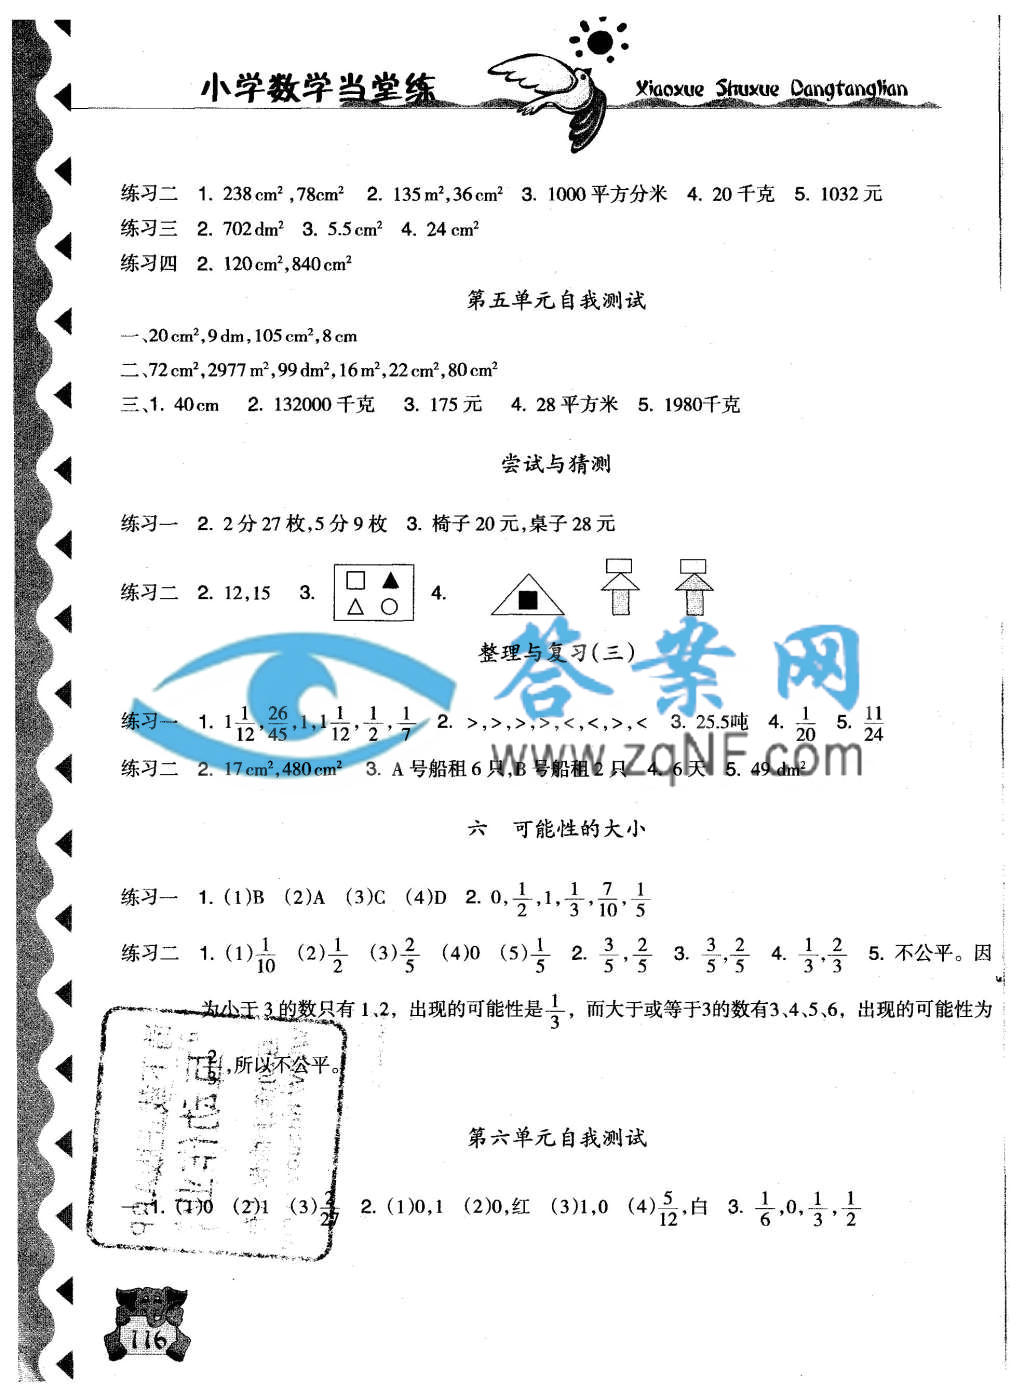 小学数学当堂练
Xiaoxue Shuxue Dangtanglian
练习二 1. 238cm²,78cm² 2. 135m²,36cm² 3. 1000平方分米 4. 20千克 5. 1032元
练习三 2. 702dm² 3. 5.5cm² 4. 24cm²
练习四 2. 120cm²,840cm²
第五单元自我测试
一、20cm²,9dm,105cm²,8cm
二、72cm²,2977m²,99dm²,16m²,22cm²,80cm²
三、1. 40cm 2. 132000千克 3. 175元 4. 28平方米 5. 1980千克
尝试与猜测
练习一 2. 2分27枚,5分9枚 3. 椅子20元,桌子28元
练习二 2. 12,15 3. 4.
答案网
整理与复习(三)
练习一 1. 1 1/12, 26/45, 1, 1 1/12, 1/2, 1/7 2. >,>,>,>,<,<,>,< 3. 25.5吨 4. 1/20 5. 11/24
www.zqNF.com
练习二 2. 17cm²,480cm² 3. A号船租6只,B号船租2只 4. 6天 5. 49dm²
六 可能性的大小
练习一 1. (1)B (2)A (3)C (4)D 2. 0, 1/2, 1, 1/3, 7/10, 1/5
练习二 1. (1)1/10 (2)1/2 (3)2/5 (4)0 (5)1/5 2. 3/5, 2/5 3. 3/5, 2/5 4. 1/3, 2/3 5. 不公平。因
为小于3的数只有1、2，出现的可能性是1/3，而大于或等于3的数有3、4、5、6，出现的可能性为
2/3,所以不公平。
第六单元自我测试
一、1. (1)0 (2)1 (3)2/27 2. (1)0,1 (2)0,红 (3)1,0 (4)5/12,白 3. 1/6, 0, 1/3, 1/2
116